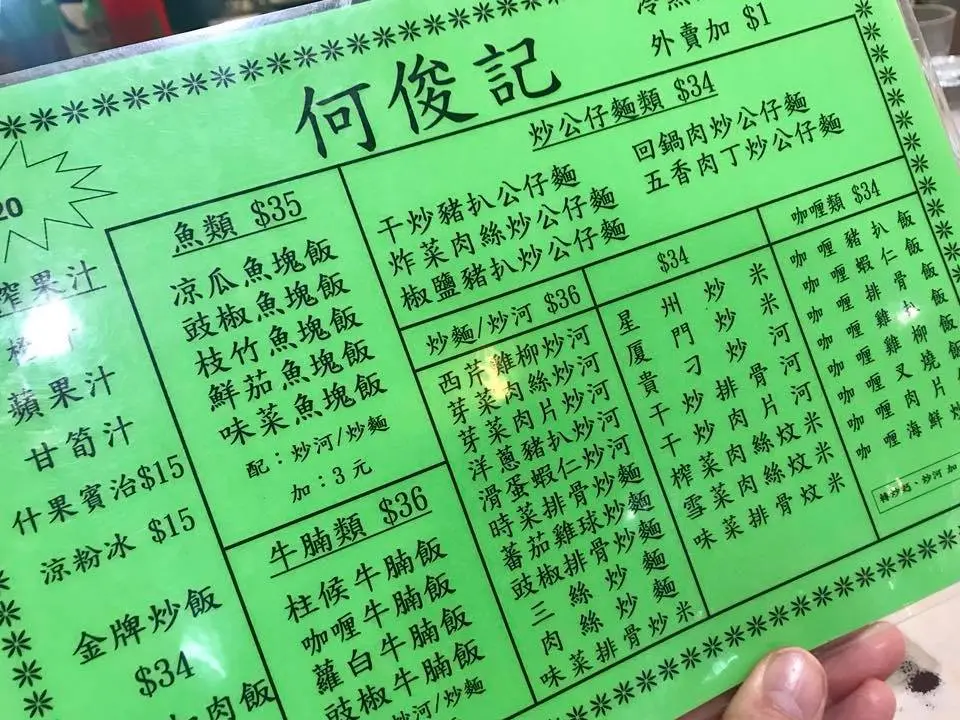 何俊記
外賣加 $1
20
榨果汁
蘋果汁
甘筍汁
什果賓治$15
涼粉冰 $15
金牌炒飯
$34
肉飯
魚類 $35
凉瓜魚塊飯
豉椒魚塊飯
枝竹魚塊飯
鮮茄魚塊飯
味菜魚塊飯
配：炒河/炒麵
加：3元
牛腩類 $36
柱候牛腩飯
咖喱牛腩飯
蘿白牛腩飯
豉椒牛腩飯
炒河/炒麵
炒公仔麵類 $34
干炒豬扒公仔麵
炸菜肉絲炒公仔麵
椒鹽豬扒炒公仔麵
回鍋肉炒公仔麵
五香肉丁炒公仔麵
炒麵/炒河 $36
西芹雞柳炒河
芽菜肉絲炒河
芽菜肉片炒河
洋蔥豬扒炒河
滑蛋蝦仁炒河
時菜排骨炒麵
蕃茄雞球炒麵
豉椒排骨炒麵
三絲炒麵
肉絲炒麵
味菜排骨炒米
$34
星州炒米
厦門炒米
貴刁炒河
干炒排骨河
干炒肉片河
榨菜肉絲炆米
雪菜肉絲炆米
味菜排骨炆米
咖喱類 $34
咖喱豬扒飯
咖喱蝦仁飯
咖喱排骨飯
咖喱雞扒飯
咖喱雞柳飯
咖喱叉燒飯
咖喱肉片
咖喱海鮮